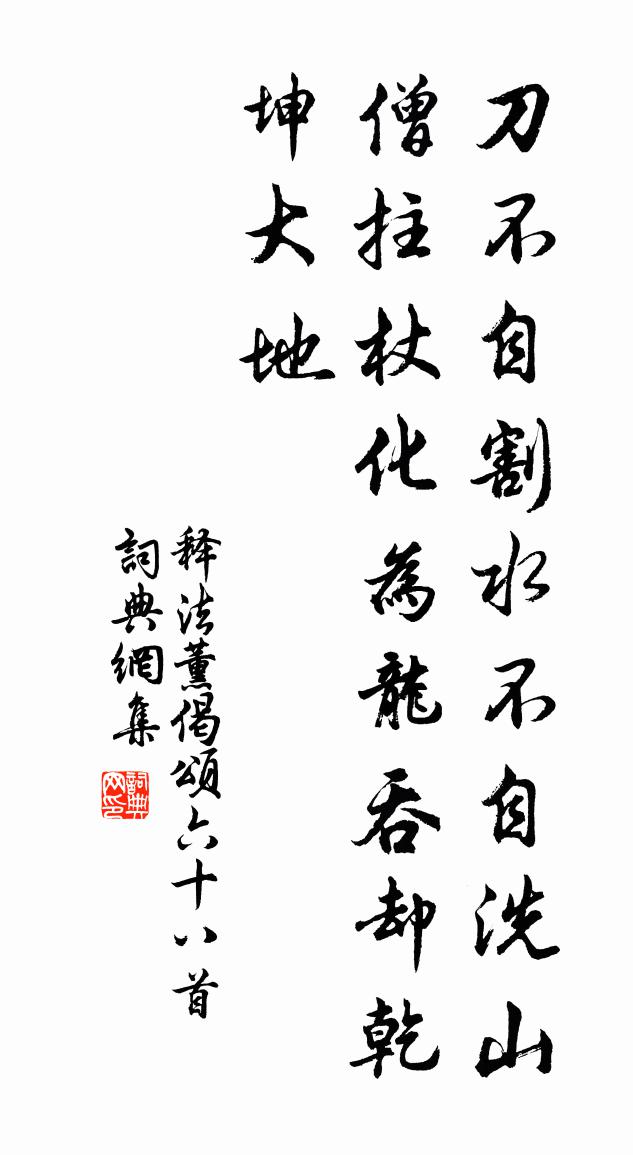 刀不自割水不自洗山
僧拄杖化為龍吞却乾
坤大地
释法薰偈頌六十八首
詞典網集
詞典網印